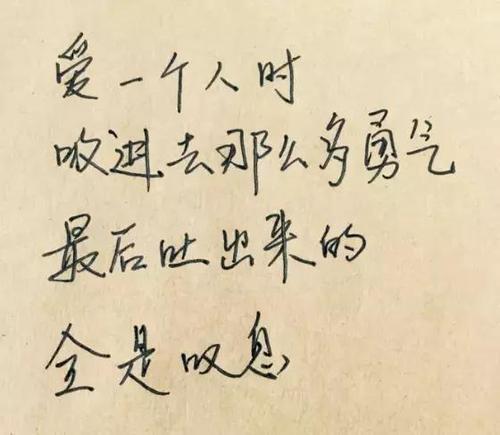 爱一个人时
吸进去那么多勇气
最后吐出来的
全是叹息